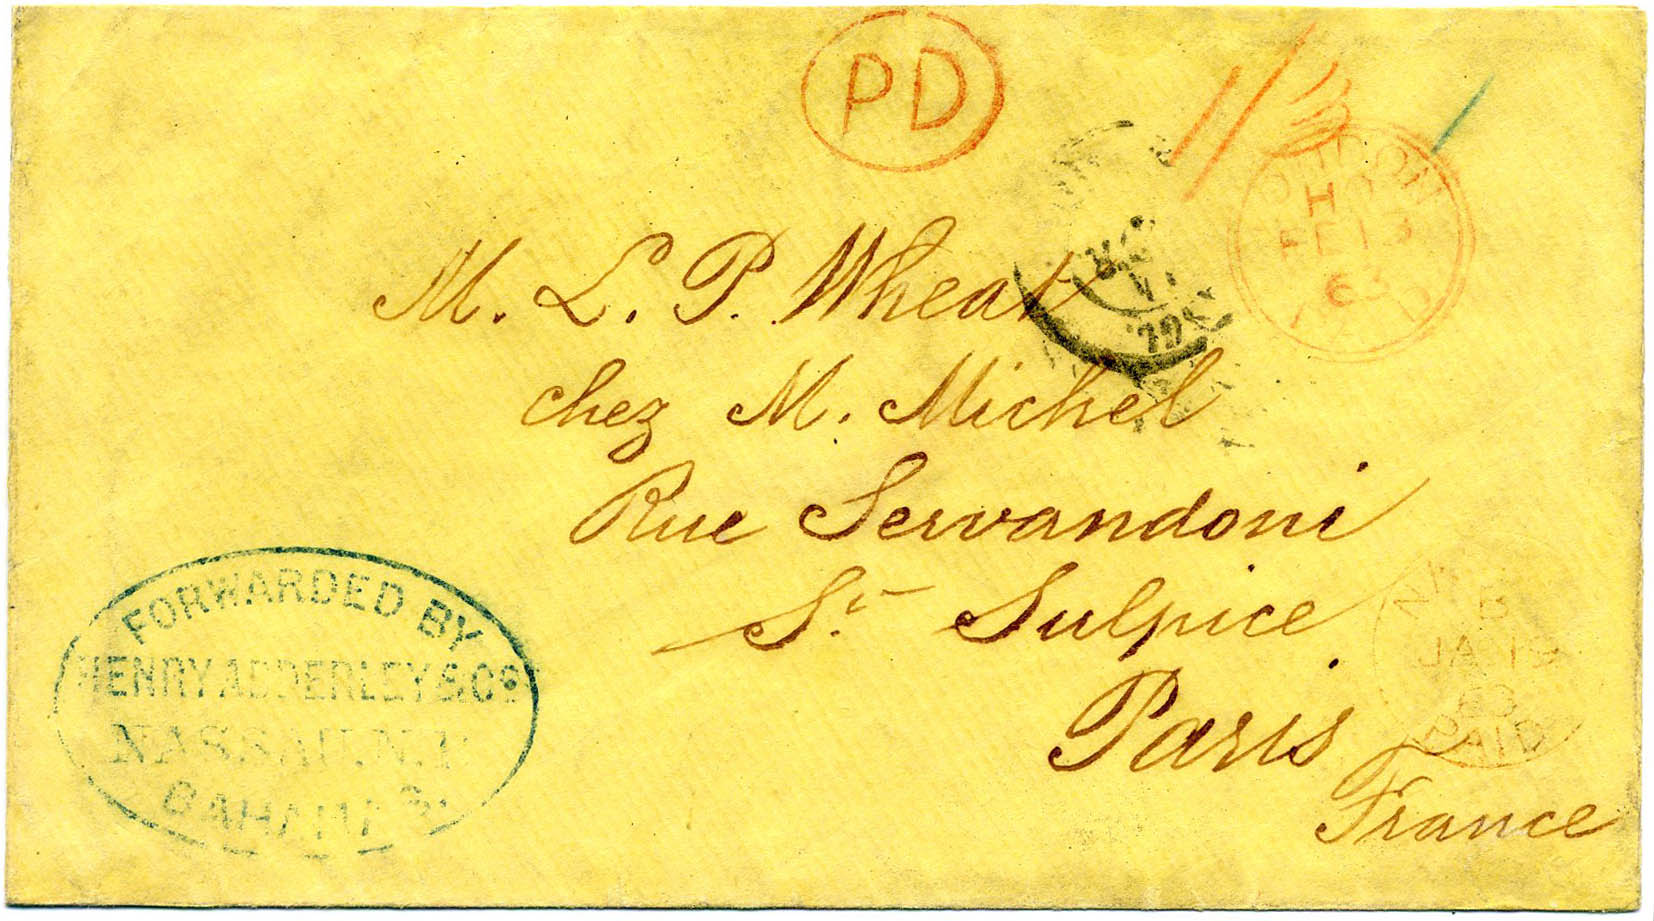 PD
LONDON
FE 13
63
PAID
M. L. P. Wheat
chez M. Michel
Rue Servandoni
St. Sulpice
Paris
France
FORWARDED BY
HENRY ADDERLEY & Co.
NASSAU. N. P.
BAHAMAS.